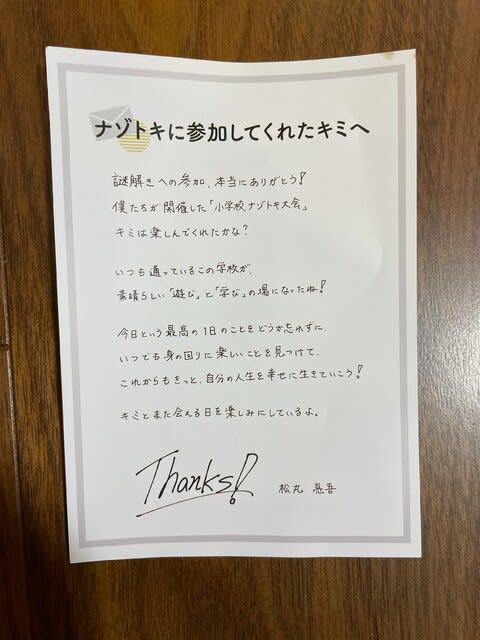 ナゾトキに参加してくれたキミへ
謎解きへの参加、本当にありがとう!
僕たちが開催した「小学校ナゾトキ大会」
キミは楽しんでくれたかな?
いつも通っているこの学校が、
素晴らしい「遊び」と「学び」の場になったね!
今日という最高の1日のことをどうか忘れずに、
いつでも身の回りに楽しいことを見つけて、
これからもきっと、自分の人生を幸せに生きていこう!
キミとまた会える日を楽しみにしているよ。
Thanks!
松丸 亮吾